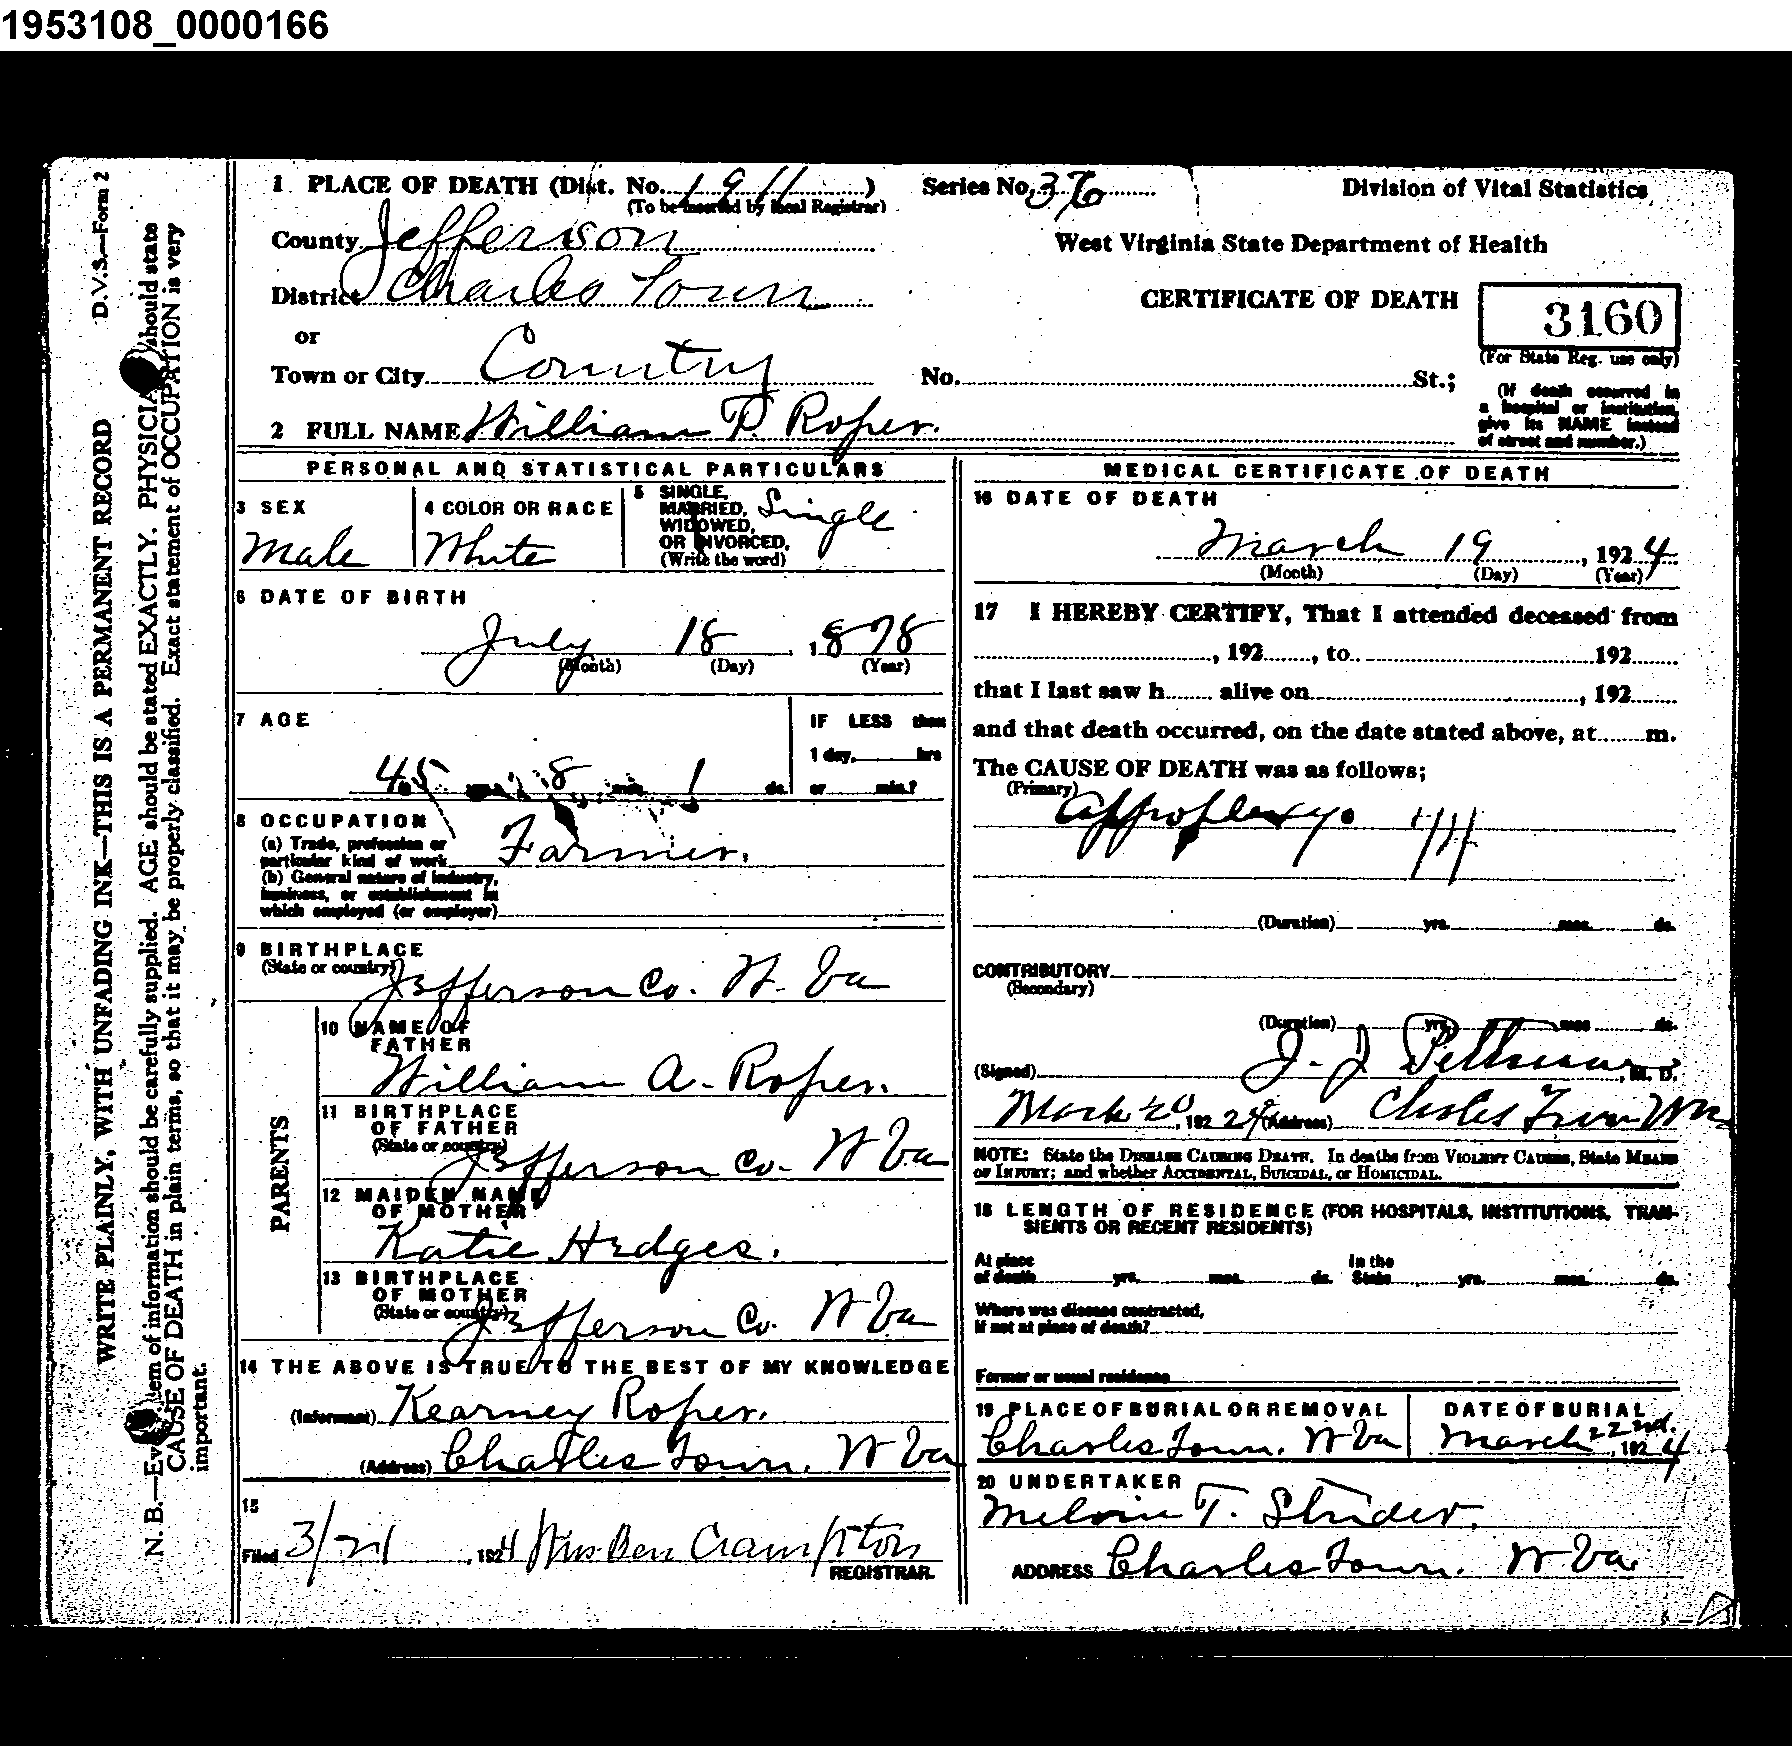 1953108_0000166
D.V.S.—Form 2
WRITE PLAINLY, WITH UNFADING INK—THIS IS A PERMANENT RECORD
N. B.—Every item of information should be carefully supplied. AGE should be stated EXACTLY. PHYSICIANS should state
CAUSE OF DEATH in plain terms, so that it may be properly classified. Exact statement of OCCUPATION is very
important.
1 PLACE OF DEATH (Dist. No. 1911) Series No. 36 Division of Vital Statistics
(To be inserted by local Registrar)
County Jefferson West Virginia State Department of Health
District Charles Town CERTIFICATE OF DEATH 3160
or (For State Reg. use only)
Town or City Country No. St.;
(If death occurred in
a hospital or institution,
give its NAME instead
of street and number.)
2 FULL NAME William P. Roper.
PERSONAL AND STATISTICAL PARTICULARS
3 SEX
Male
4 COLOR OR RACE
White
5 SINGLE,
MARRIED,
WIDOWED,
OR DIVORCED,
(Write the word)
Single
6 DATE OF BIRTH
July 18, 1878
(Month) (Day) (Year)
7 AGE
45 yrs. 8 mos. 1 ds.
IF LESS than
1 day, hrs
or min.?
8 OCCUPATION
(a) Trade, profession or
particular kind of work Farmer.
(b) General nature of industry,
business, or establishment in
which employed (or employer)
9 BIRTHPLACE
(State or country)
Jefferson Co. W. Va
PARENTS
10 NAME OF
FATHER
William A. Roper.
11 BIRTHPLACE
OF FATHER
(State or country)
Jefferson Co. W Va
12 MAIDEN NAME
OF MOTHER
Katie Hedges.
13 BIRTHPLACE
OF MOTHER
(State or country)
Jefferson Co. W Va
14 THE ABOVE IS TRUE TO THE BEST OF MY KNOWLEDGE
(Informant) Kearney Roper.
(Address) Charles Town. W Va
15
Filed 3/21, 1924 Mrs Ben Crampton
REGISTRAR.
MEDICAL CERTIFICATE OF DEATH
16 DATE OF DEATH
March 19, 1924
(Month) (Day) (Year)
17 I HEREBY CERTIFY, That I attended deceased from
, 192 , to 192
that I last saw h alive on , 192
and that death occurred, on the date stated above, at m.
The CAUSE OF DEATH was as follows;
(Primary)
Approplexy.
(Duration) yrs. mos. ds.
CONTRIBUTORY
(Secondary)
(Duration) yrs. mos. ds.
(Signed) , M. D.
March 20, 192 24 (Address) Charles Town W Va
NOTE: State the DISEASE CAUSING DEATH. In deaths from VIOLENT CAUSES, State MEANS
OF INJURY; and whether ACCIDENTAL, SUICIDAL, or HOMICIDAL.
18 LENGTH OF RESIDENCE (FOR HOSPITALS, INSTITUTIONS, TRAN-
SIENTS OR RECENT RESIDENTS)
At place In the
of death yrs. mos. ds. State yrs. mos. ds.
Where was disease contracted,
If not at place of death?
Former or usual residence
19 PLACE OF BURIAL OR REMOVAL
Charles Town. W Va
DATE OF BURIAL
March 22nd., 1924
20 UNDERTAKER
Melvin T. Strider.
ADDRESS Charles Town. W Va.